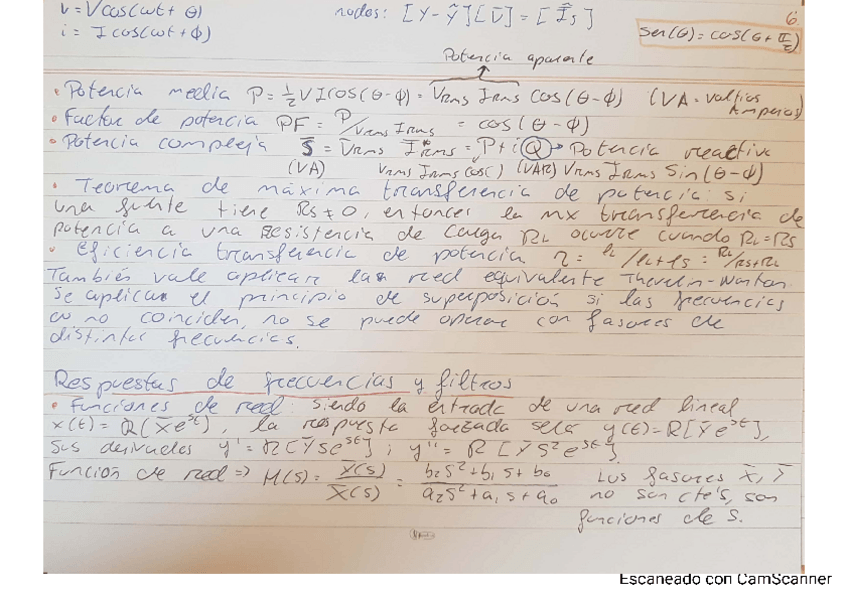 v = V cos(ωt + θ)
i = I cos(ωt + ϕ)
nodos: [Y - Ŷ][V̄] = [Īs]
6
sen(θ) = cos(θ + π/2)
Potencia aparente
• Potencia media P = ½ V I cos(θ-ϕ) = Vrms Irms cos(θ-ϕ) (VA = voltios
Amperios)
• Factor de potencia PF = P/Vrms Irms = cos(θ-ϕ)
• Potencia compleja S̄ = V̄rms Ī*rms = P + iQ → Potencia reactiva
(VA) Vrms Irms cos( ) (VAR) Vrms Irms Sin(θ-ϕ)
• Teorema de máxima transferencia de potencia: si
una fuente tiene Rs ≠ 0, entonces la mx transferencia de
potencia a una resistencia de carga RL ocurre cuando RL = Rs
• Eficiencia transferencia de potencia η = PL/PL+Ps = RL/Rs+RL
También vale aplicar la red equivalente Thevelin-Norton.
Se aplican el principio de superposición si las frecuencias
ω no coinciden, no se puede operar con fasores de
distintas frecuencias.
Respuestas de frecuencias y filtros
• Funciones de red: siendo la entrada de una red lineal
x(t) = R(X̄e^st), la respuesta forzada será y(t) = R[Ȳe^st],
sus derivadas y' = R[ȲSe^st]; y'' = R[ȲS²e^st]
Función de red => H(s) = Ȳ(s)/X̄(s) = b₂s²+b₁s+b₀/a₂s²+a₁s+a₀ Los fasores X̄, Ȳ
no son cte's, son
funciones de s.
Escaneado con CamScanner